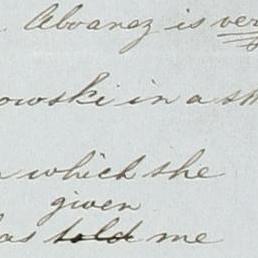 . Alvarez is very
owski in a st
which she
given
has told me